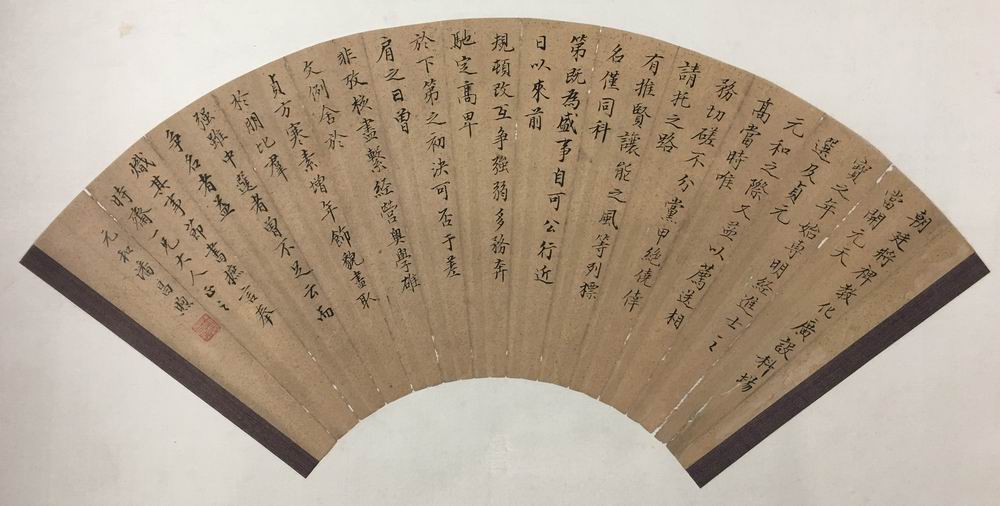 朝廷將裨教化廣設科場
當開元天
寶之年始專明經進士之
選及貞元
元和之際又益以薦送相
高當時唯
務切磋不分黨甲絶僥倖
請托之路
有推賢讓能之風等列標
名僅同科
第既為盛事自可公行近
日以來前
規頓改互争強弱多務奔
馳定高卑
於下第之初決可否于差
肩之日曾
非攷核盡繫經營奥學雄
文例舍於
貞方寒素增年飾貌盡取
於朋比羣
强雖中選者曾不足云而
争名者益
熾其事節書摭言奉
時齋一兄大人正之
元和潘昌煦